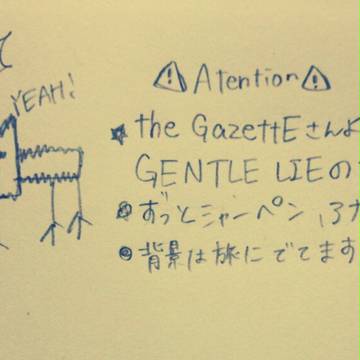 YEAH!
⚠Atention⚠
★the GazettEさんよ
GENTLE LIEの
ずっとシャーペン
背景は旅にでてます